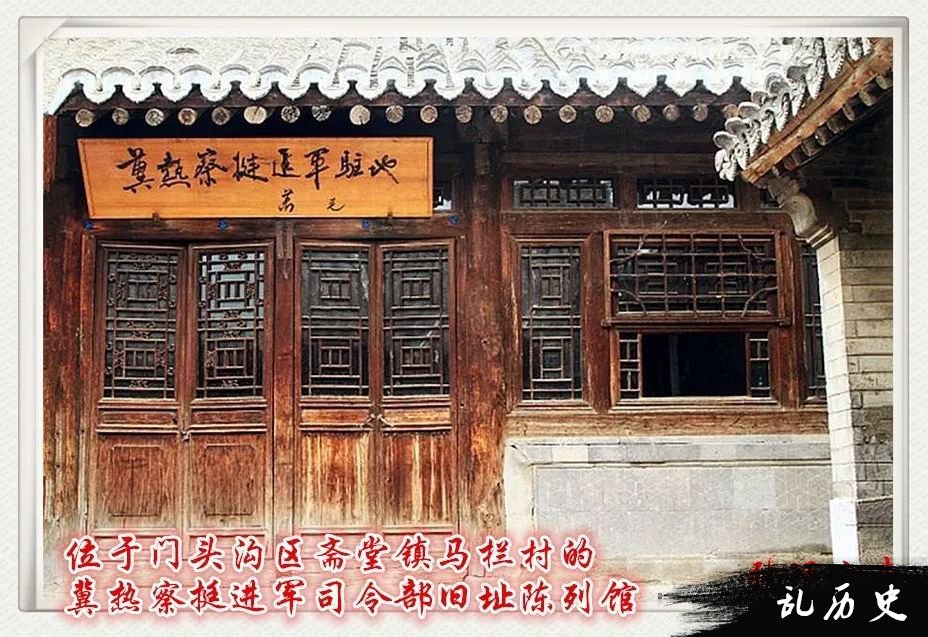 冀热察挺进军駐地
萧克
位于门头沟区斋堂镇马栏村的
冀热察挺进军司令部旧址陈列馆
乱历史